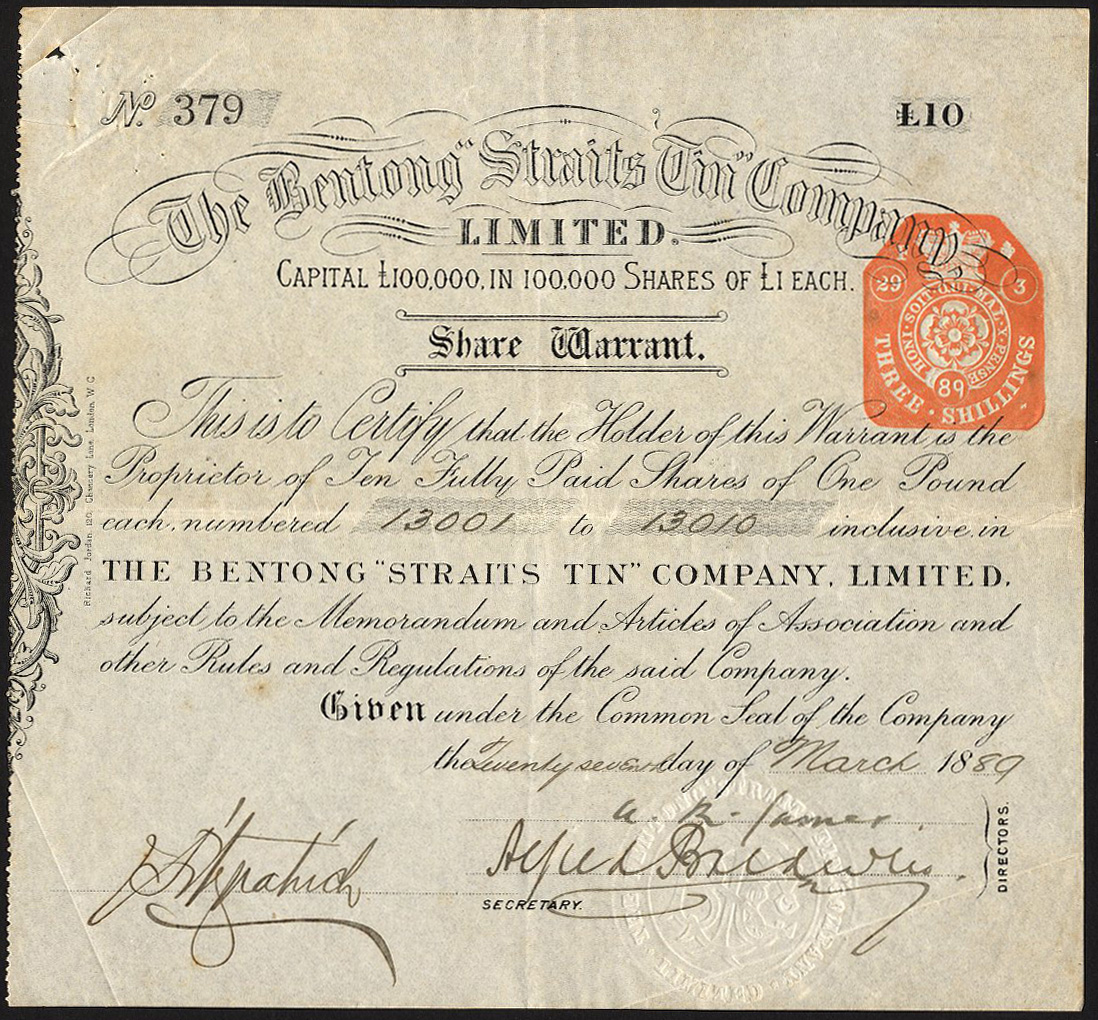 No. 379
£10
The Bentong "Straits Tin" Company
LIMITED.
CAPITAL £100,000, IN 100,000 SHARES OF £1 EACH.
29 3
HONI·SOIT·QUI·MAL·Y·PENSE
89
THREE · SHILLINGS
Share Warrant.
This is to Certify that the Holder of this Warrant is the
Proprietor of Ten Fully Paid Shares of One Pound
each, numbered 13001 to 13010 inclusive, in
THE BENTONG "STRAITS TIN" COMPANY, LIMITED,
subject to the Memorandum and Articles of Association and
other Rules and Regulations of the said Company.
Given under the Common Seal of the Company
the Twenty seventh day of March 1889
A. R. James
Alfred Baldwin
DIRECTORS.
J Fitzpatrick
SECRETARY.
Richard Jordan, 120, Chancery Lane, London, W C